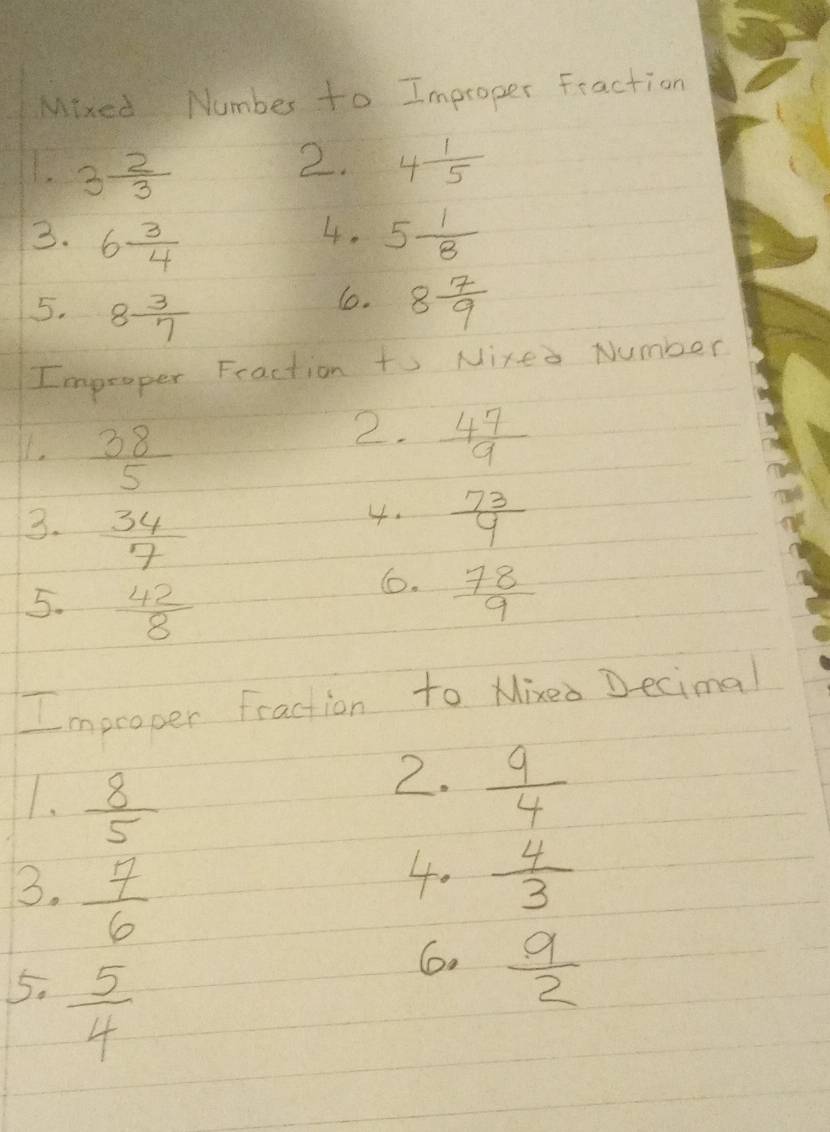 Mixed Number to Improper Fraction
1. 3 2/3 2. 4 1/5
3. 6 3/4 4. 5 1/8
5. 8 3/7 6. 8 7/9
Improper Fraction to Mixed Number
1. 38/5 2. 47/9
3. 34/7 4. 73/9
5. 42/8 6. 78/9
Improper Fraction to Mixed Decimal
1. 8/5 2. 9/4
3. 7/6 4. 4/3
5. 5/4 6. 9/2